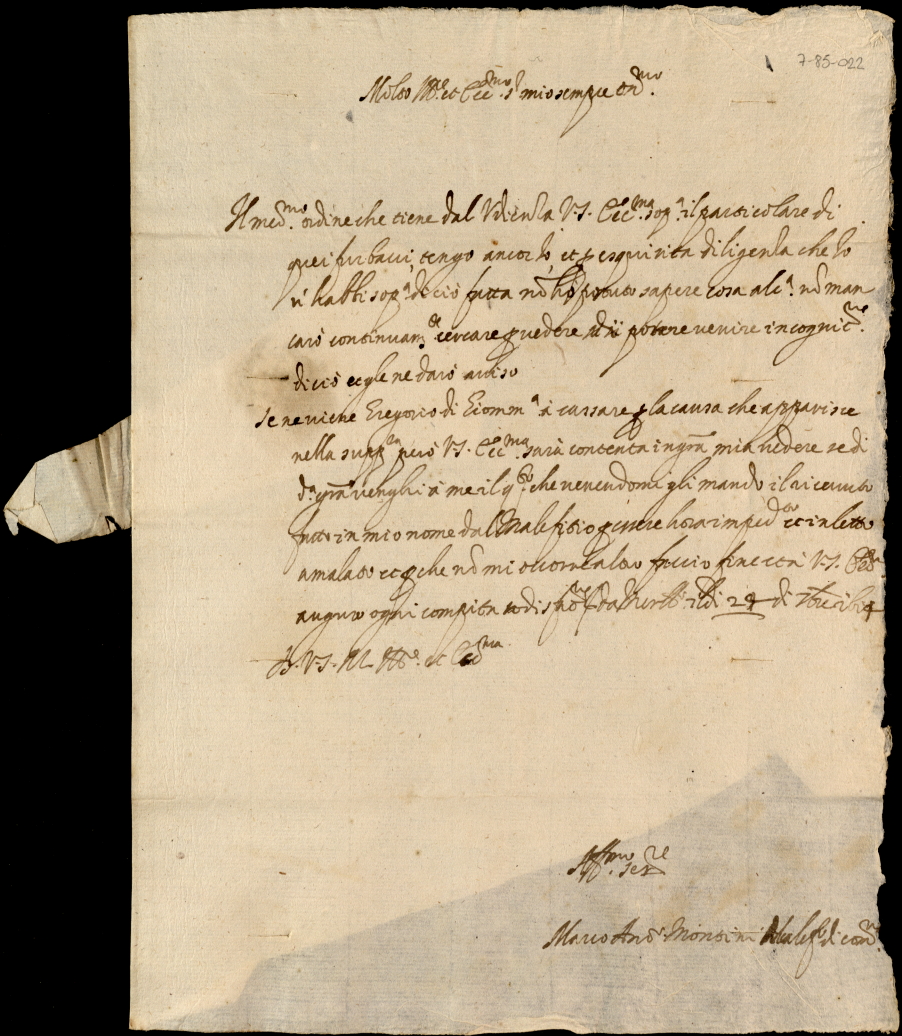 7-85-022
Molto Ill.re et Ecc.mo s.r mio sempre on.mo
Il med.mo ordine che tiene dal V.S. Ecc.ma sop.a il particolare di
quei furbacci, tengo ancor Io, et p esquisita diligenza che Io
n'habbi sop.a di ciò fatta nō hò potuto sapere cosa alc.a nō man
carò continuam.te cercare p vedere di potere venire in cognit.ne
di ciò et gle ne darò aviso
se ne viene Gregorio di Giomm.a à cassare p la causa che apparisce
nella supp.ca però V.S. Ecc.ma sarà contenta in gr̄a mia vedere se di
d.a gr̄a venghi à me il q.to che venendomi gli mando il ricevuto
fatto in mio nome dal Malefitio p essere hora imped.to et in letto
amalato et p che nō mi occorre altro faccio fine et à V.S. Ecc.ma
auguro ogni compita sodisfat.ne Da li 24 di
D. V.S. M. Ill.re et Ecc.ma
Aff.mo ser.re
Marco Ant.o Montini di com.ne